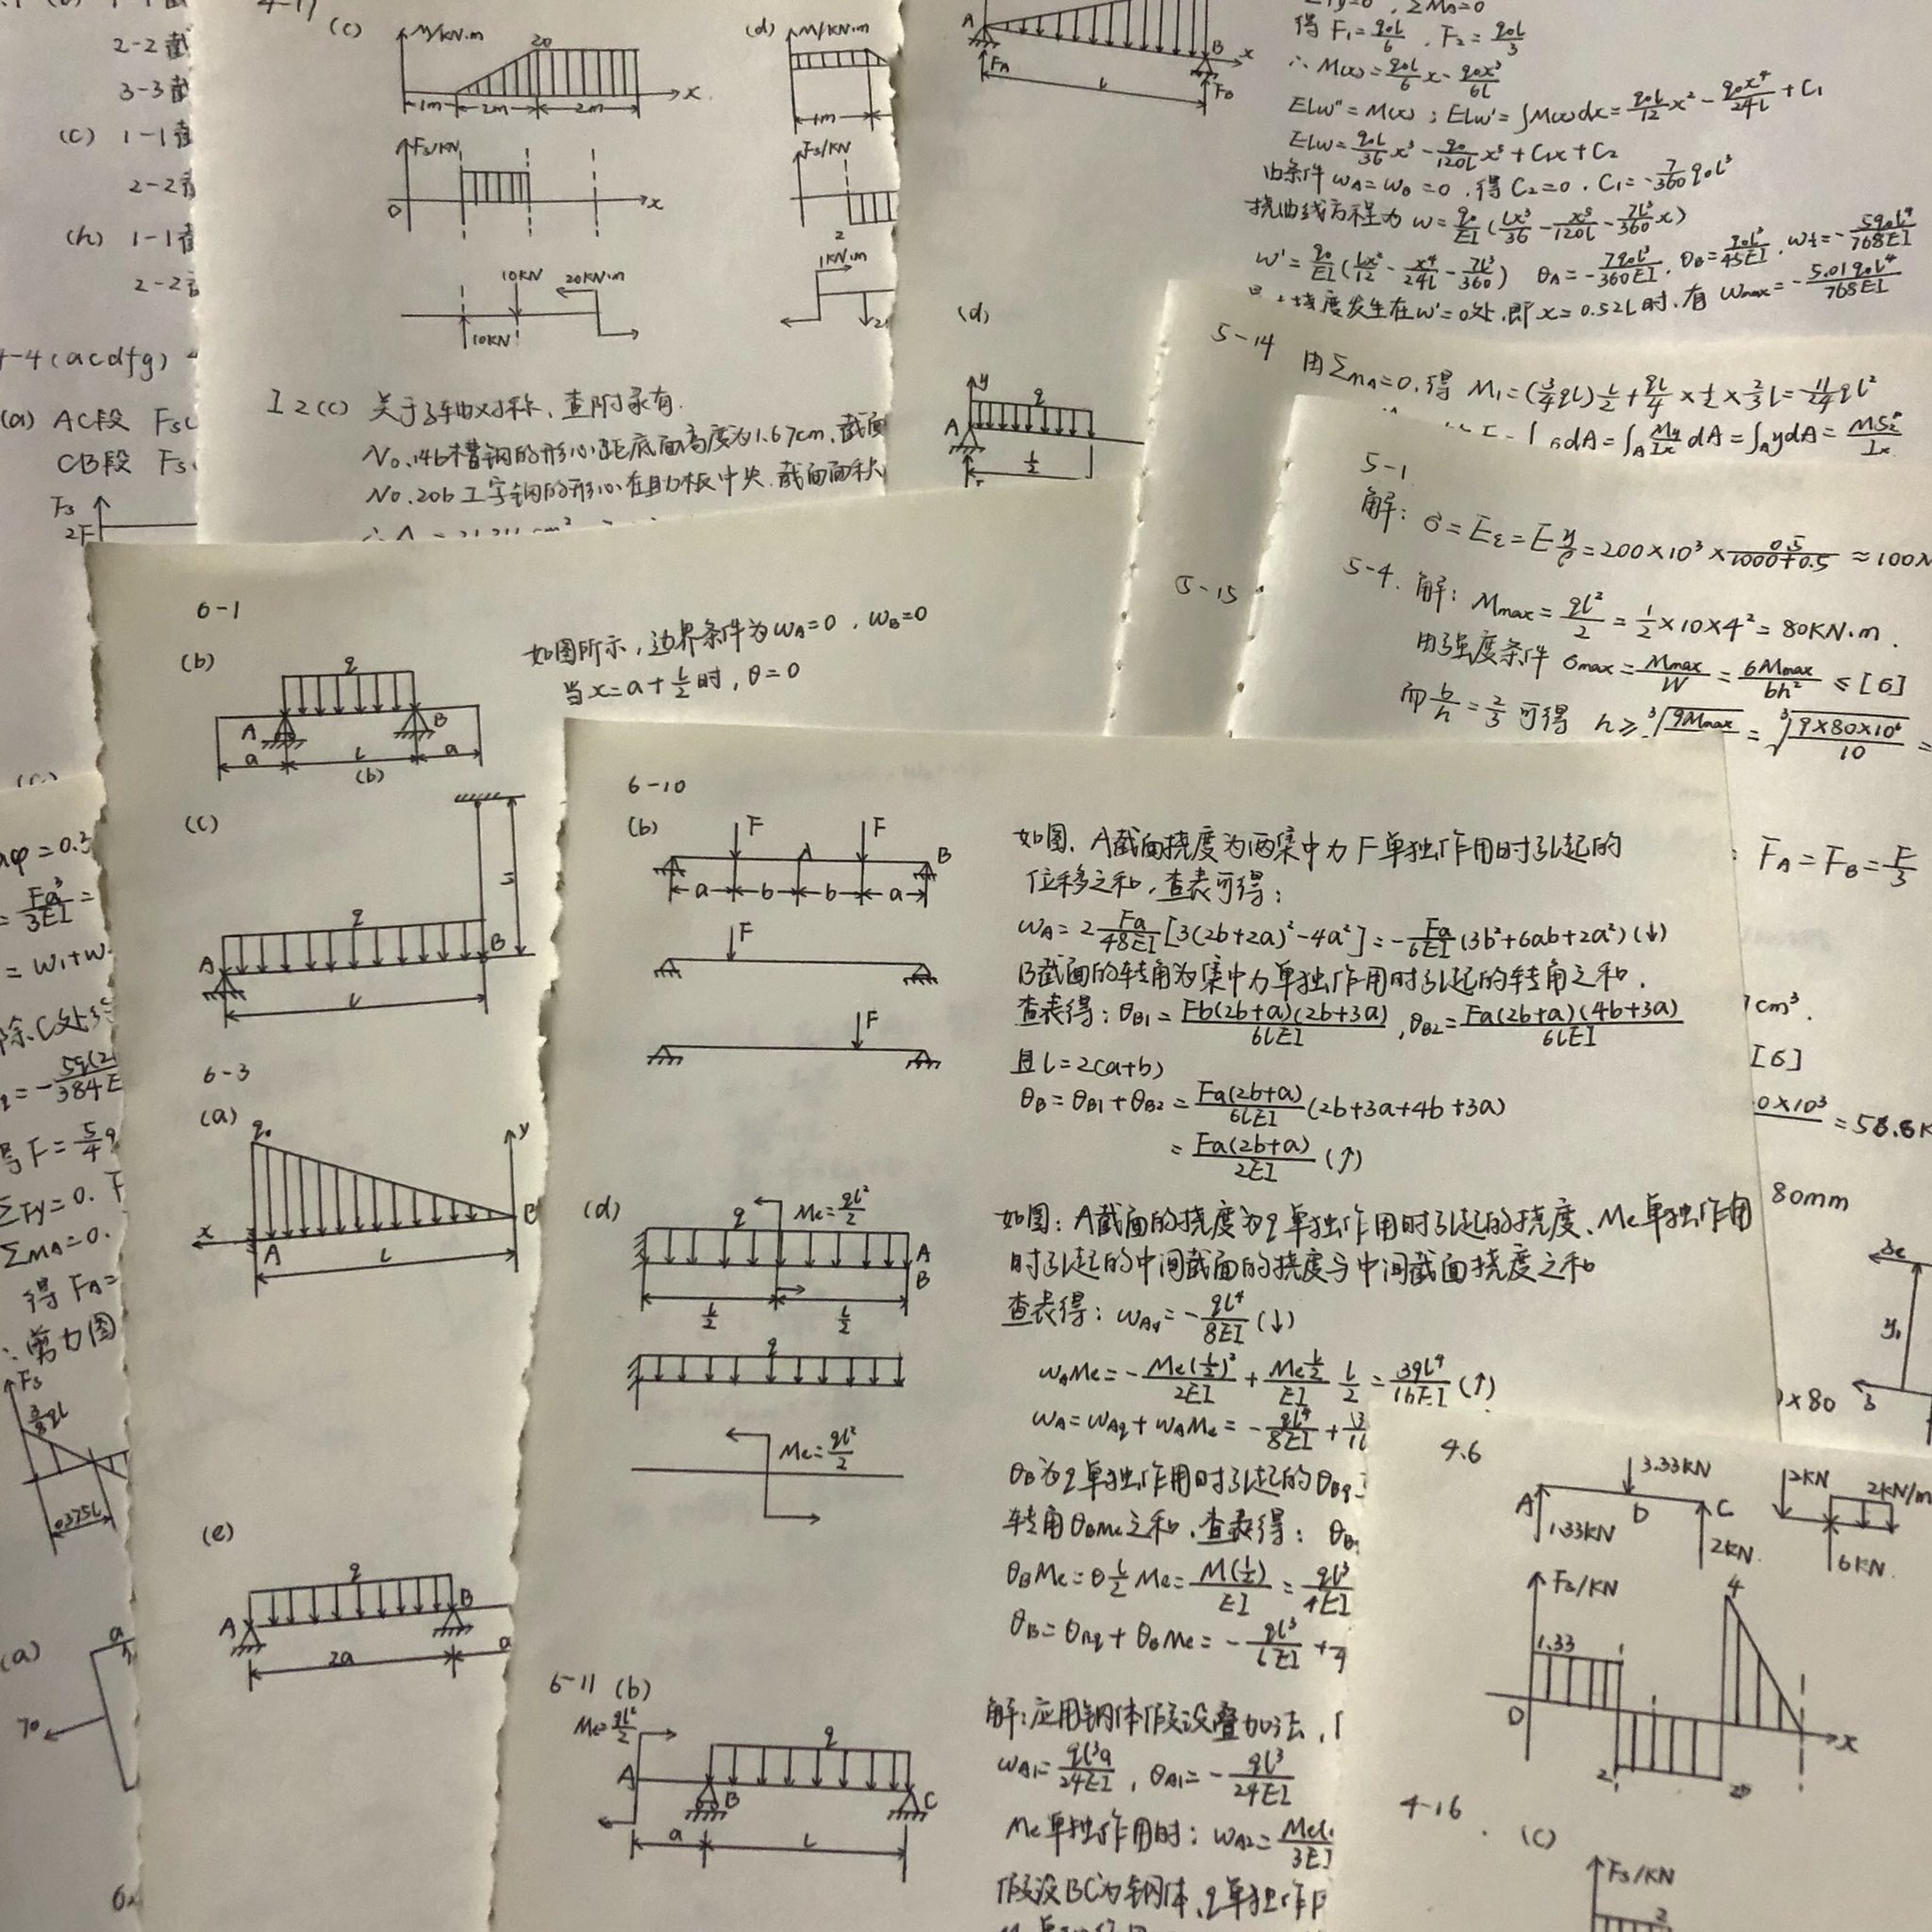 2-2截
3-3截
(c) 1-1截
2-2截
(h) 1-1截
2-2截
4-4(acdfg)
(a) AC段 Fs
CB段 Fs
Fs
2F
4-17
(c)
M/KN·m
20
1m 2m 2m x
Fs/KN
O x
10KN 20KN·m
10KN
(d)
M/KN·m
1m
Fs/KN
2
1KN·m
I2(c) 关于z轴对称,查附录有.
No.14b槽钢的形心距底面高度为1.67cm,截面
No.20b工字钢的形心在肋板中央.截面面积
A B x
FA FB
L
ΣFy=0, ΣMA=0
得 F₁=q₀L/6 , F₂=q₀L/3
∴ M(x)=q₀L/6 x-q₀x³/6L
EIw''=M(x) ; EIw'=∫M(x)dx=q₀L/12 x²-q₀x⁴/24L+C₁
EIw=q₀L/36 x³-q₀/120L x⁵+C₁x+C₂
由条件 wA=wB=0 ,得 C₂=0 . C₁=-7/360 q₀L³
挠曲线方程为 w=q₀/EI(Lx³/36-x⁵/120L-7L³/360 x)
w'=q₀/EI(Lx²/12-x⁴/24L-7L³/360) θA=-7q₀L³/360EI, θB=q₀L³/45EI, w½=-5q₀L⁴/768EI
挠度发生在w'=0处,即x=0.52L时,有 wmax=-5.01q₀L⁴/768EI
(d)
y
q
A
L/2
5-14 由ΣmA=0,得 M₁=(3/4qL)L/2+qL/4×1/2×2/3L=11/24qL²
∫σdA=∫A My/Iz dA=∫A ydA=MSz/Iz
5-15
5-1
解: σ=Eε=E y/ρ=200×10³×0.5/1000+0.5≈100M
5-4. 解: Mmax=qL²/2=1/2×10×4²=80KN·m.
由强度条件 σmax=Mmax/W=6Mmax/bh²≤[σ]
而b/h=2/3可得 h≥³√9Mmax=³√9×80×10⁶/10=
FA=FB=F/3
cm³.
[σ]
0×10³=58.8K
80mm
×80
6-1
(b)
q
A B
a L a
(b)
如图所示,边界条件为wA=0 , wB=0
当x=a+L/2时,θ=0
(c)
q
A B
L
6-3
(a)
q₀
y
x A B
L
(e)
q
A B
2a a
φ=0.3
Fa³/3EI=
=w₁+w
除C处
=-5q(2/384E
F=5/4q
ΣFy=0.
ΣMA=0.
得 FA=
∴剪力图
Fs
3/8qL
0.375L
(a)
a
6-10
(b)
F F
A B
a b b a
F
F
如图,A截面挠度为两集中力F单独作用时引起的
位移之和,查表可得:
wA=2Fa/48EI[3(2b+2a)²-4a²]=-Fa/6EI(3b²+6ab+2a²)(↓)
B截面的转角为集中力单独作用时引起的转角之和.
查表得:θB1=Fb(2b+a)(2b+3a)/6LEI ,θB2=Fa(2b+a)(4b+3a)/6LEI
且L=2(a+b)
θB=θB1+θB2=Fa(2b+a)/6LEI(2b+3a+4b+3a)
=Fa(2b+a)/2EI(↑)
(d)
q Me=qL²/2
A
B
L/2 L/2
q
Me=qL²/2
如图:A截面的挠度为q单独作用时引起的挠度、Me单独作用
时引起的中间截面的挠度与中间截面挠度之和
查表得:wAq=-qL⁴/8EI(↓)
wAMe=-Me(L/2)²/2EI+MeL/2/EI L/2=3qL⁴/16EI(↑)
wA=wAq+wAMe=-qL⁴/8EI+
θB为q单独作用时引起的θBq
转角θBMe之和,查表得:θB
θBMe=θL/2Me=M(L/2)/EI=qL³/4EI
θB=θBq+θBMe=-qL³/6EI+
6-11 (b)
Me=qL²/2
q
A B C
a L
解:应用钢体假设叠加法,
wA1=qL³a/24EI , θA1=-qL³/24EI
Me单独作用时:wA2=MeL/3EI
假设BC为钢体,q单独作
4.6
3.33KN
A D C
1.33KN 2KN
2KN 2KN/m
6KN
Fs/KN
4
1.33
O x
2
4-16 .
(c)
Fs/KN
2